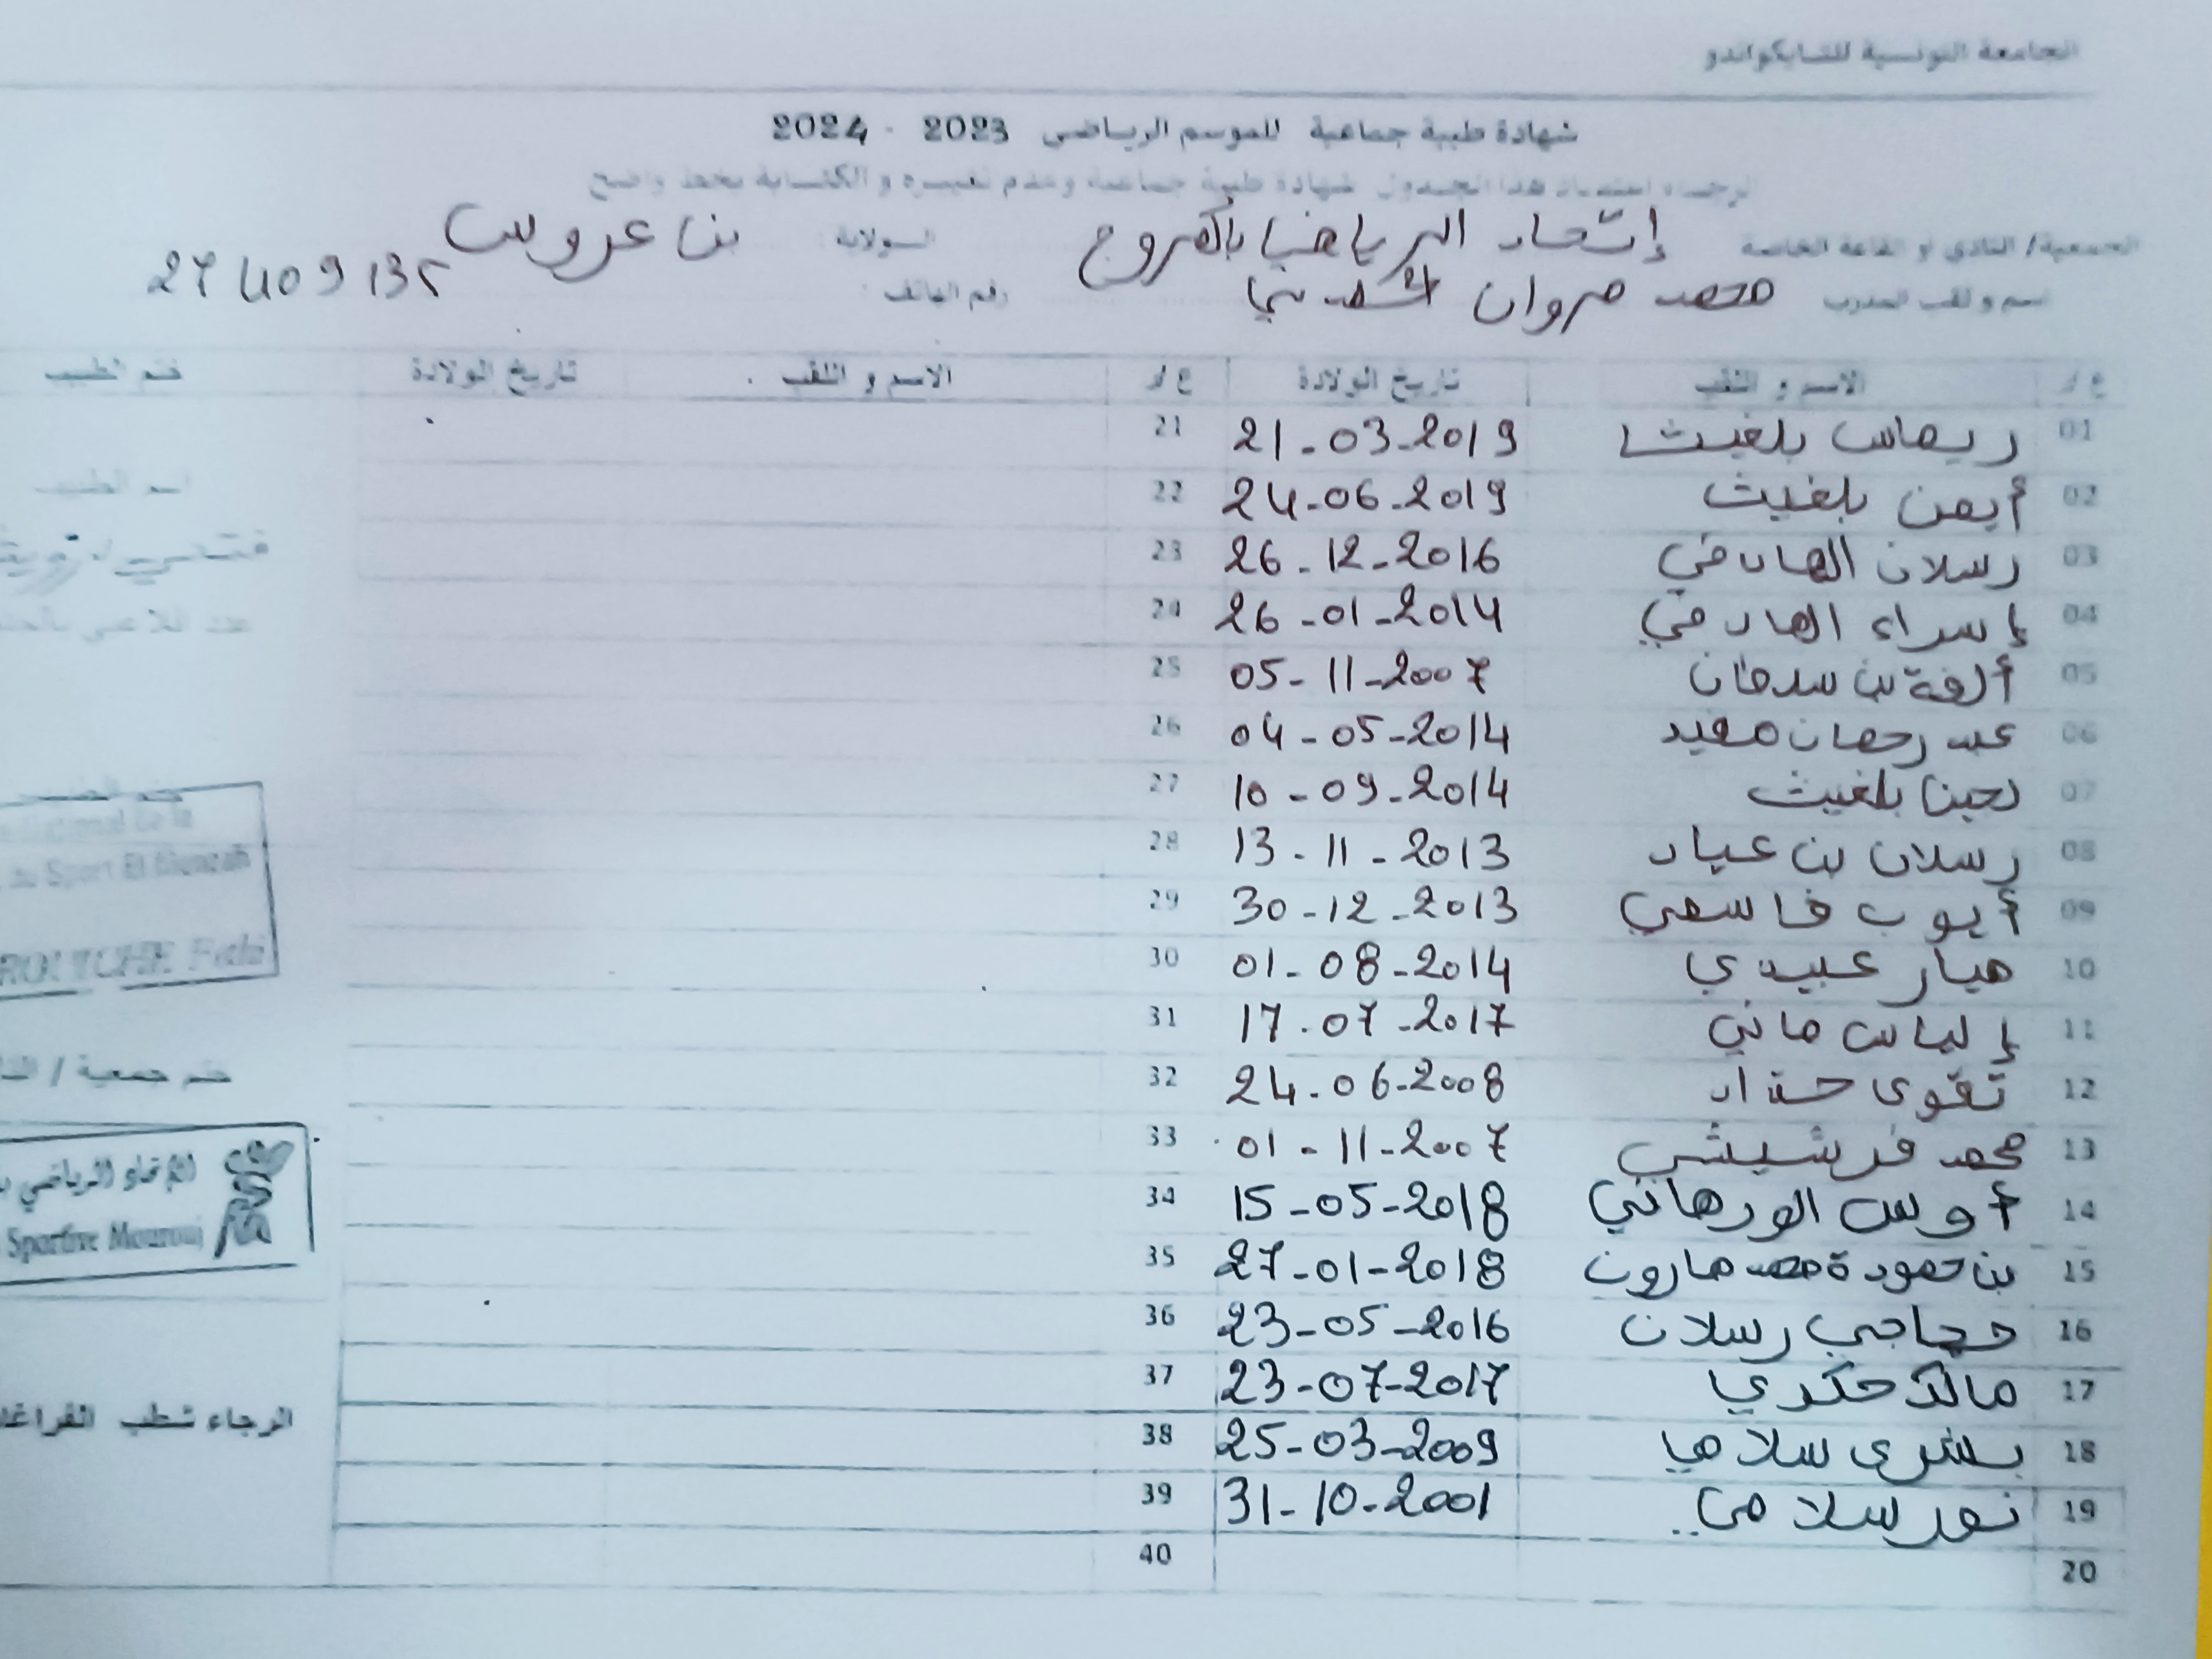 الجامعة التونسية للتايكواندو
شهادة طبية جماعية للموسم الرياضي 2023 - 2024
الرجاء اعتماد هذا الجدول شهادة طبية جماعية وعدم تغييره و الكتابة بخط واضح
الجمعية/ النادي او القاعة الخاصة إتحاد الرياضي بالمروج الولاية: بن عروس
اسم و لقب المدرب محمد مروان رقم الهاتف: 27 409 135
ع/د الاسم و اللقب تاريخ الولادة ع/د الاسم و اللقب تاريخ الولادة ختم الطبيب
01 ريماس بلغيث 21-03-2019 21
02 أيمن بلغيث 24-06-2019 22
اسم الطبيب
03 رسلان الهادفي 26-12-2016 23
04 إسراء الهادفي 26-01-2014 24
05 ألفة بن 05-11-2007 25
06 عبد رحمان مفيد 04-05-2014 26
07 لجين بلغيث 10-09-2014 27
ختم الطبيب
National de la
08 رسلان بن عياد 13-11-2013 28
du Sport El Menzah
09 أيوب قاسمي 30-12-2013 29
10 ميار عبيدي 01-08-2014 30
Fethi
11 إلياس ماني 17-07-2017 31
ختم جمعية /
12 تقوى حداد 24-06-2008 32
13 محمد فرشيشي 01-11-2007 33
الإتحاد الرياضي
14 أوس الورهاني 15-05-2018 34
Sportive Mourouj
15 بن حمودة محمد هارون 27-01-2018 35
16 حجاجي رسلان 23-05-2016 36
17 مالك حكري 23-07-2017 37
الرجاء شطب
18 بشرى سلامي 25-03-2009 38
19 نور سلامي 31-10-2001 39
20 40